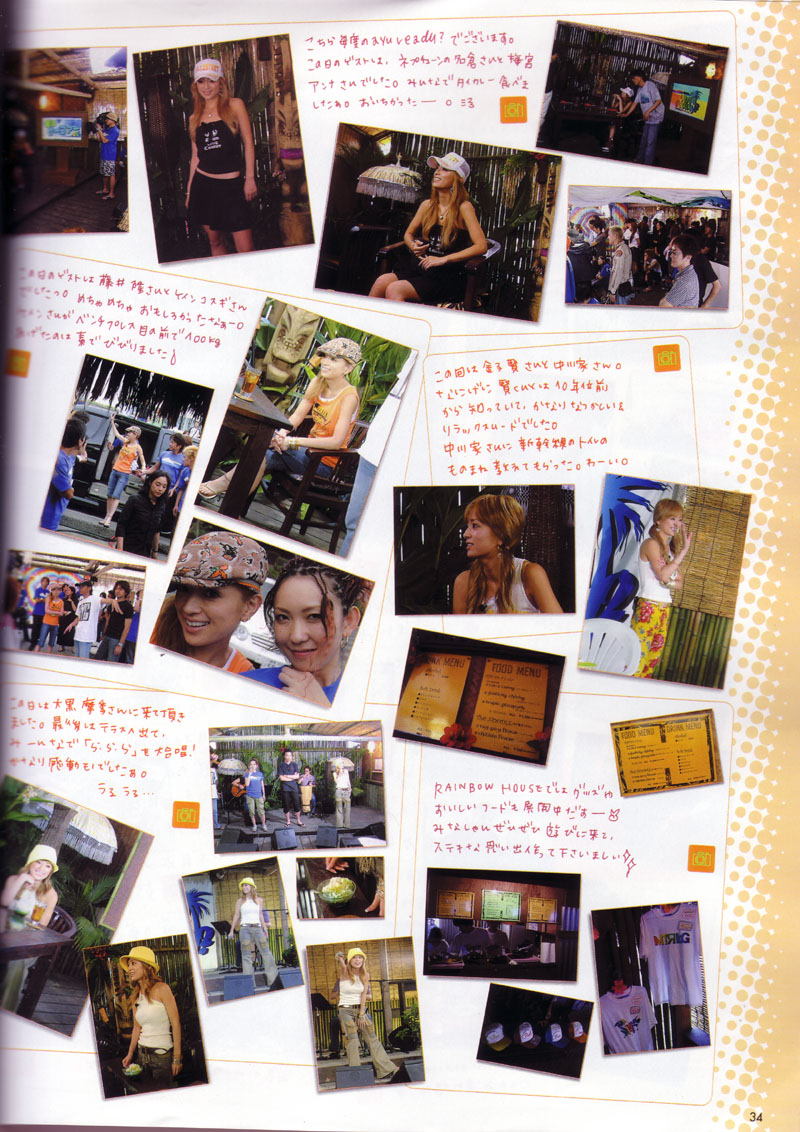 こちら毎度のayu ready? でございます。
この日のゲストは、ネプチューンの名倉さんと梅宮
アンナさんでした。みんなでタイカレー食べま
したぁ。おいちかったー。
この日のゲストは藤井隆さんとケインコスギさん
でしたっ。めちゃめちゃおもしろかったなぁー。
ケインさんがベンチプレス目の前で100kg
あげたのは素でびびりました
この回は金子賢さんと中川家さん。
なにげに賢さんとは10年位前
から知っていて、かなりなつかしい&
リラックスムードでした。
中川家さんに新幹線のトイレの
ものまねまでしてもらった。わーい。
この日は大黒摩季さんに来て頂き
ました。最後はテラスへ出て、
みーんなで「ら・ら・ら」を大合唱!
かなり感動モンでしたぁ。
うる うる…
DRINK MENU
FOOD MENU
FOOD MENU
DRINK MENU
RAINBOW HOUSEではグッズや
おいしいフードも展開中だすー
みなしゃんぜひぜひ遊びに来て、
ステキな思い出作って下さいましい
34